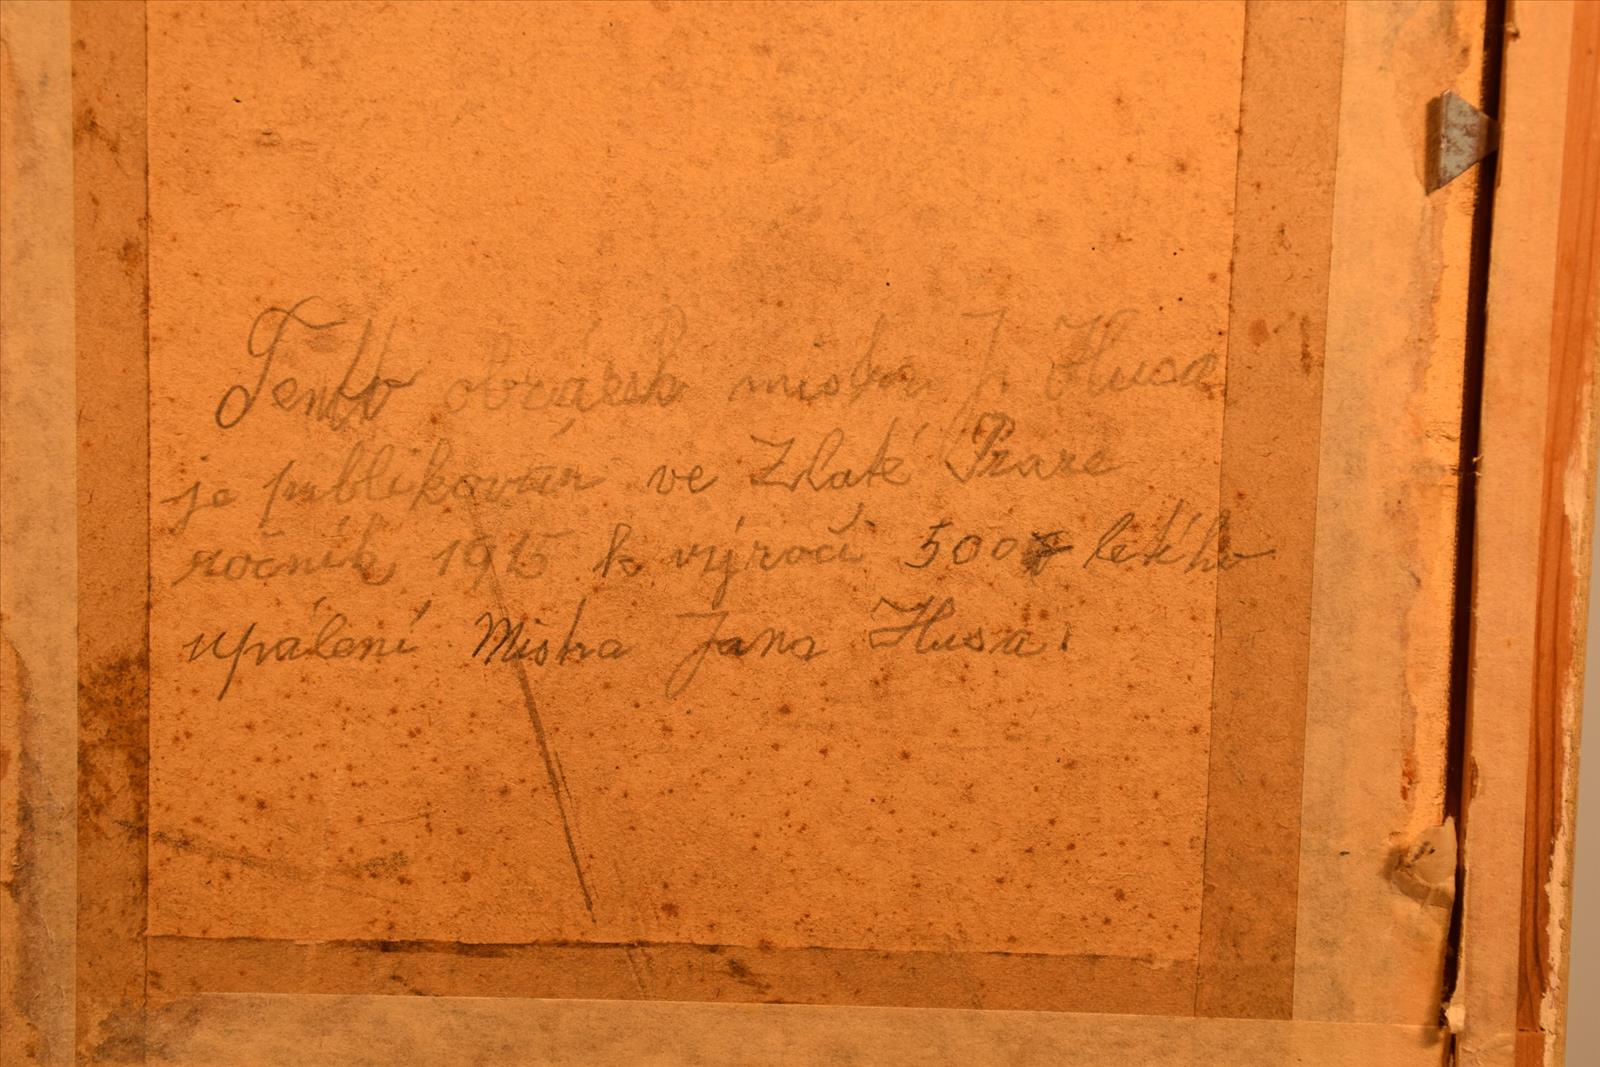 Tento obrázek mistra J. Husa
je publikován ve Zlaté Praze
ročník 1915 k výročí 500 letého
upálení Mistra Jana Husa.